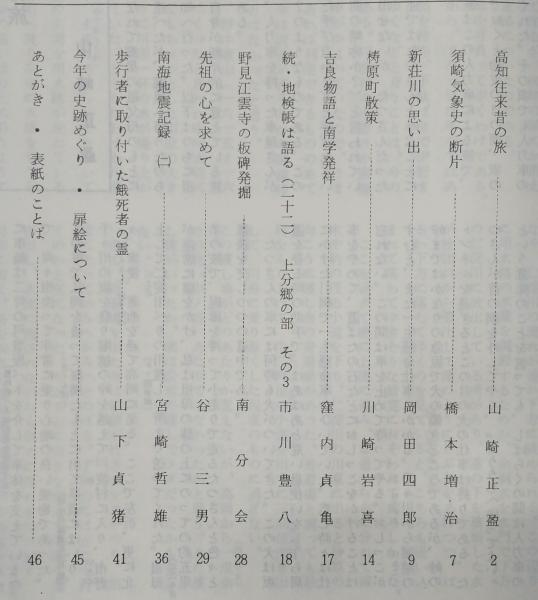 高知往来昔の旅 山崎正盈 2
須崎気象史の断片 橋本増治 7
新荘川の思い出 岡田四郎 9
梼原町散策 川崎岩喜 14
吉良物語と南学発祥 窪内貞亀 17
続・地検帳は語る(二十二) 上分郷の部 その3 市川豊八 18
野見江雲寺の板碑発掘 南分会 28
先祖の心を求めて 谷三男 29
南海地震記録 (二) 宮崎哲雄 36
歩行者に取り付いた餓死者の霊 山下貞猪 41
今年の史跡めぐり • 扉絵について 45
あとがき • 表紙のことば 46